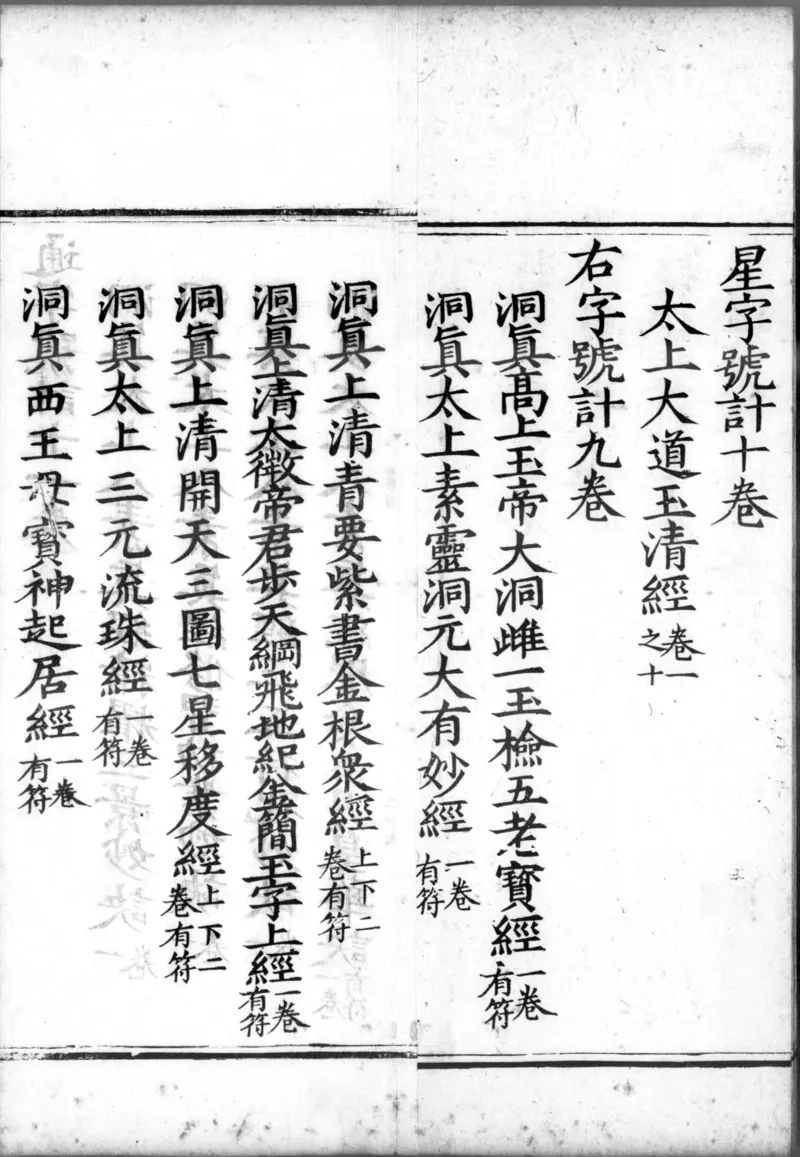 星字號計十卷
太上大道玉清經卷一之十
右字號計九卷
洞眞高上玉帝大洞雌一玉檢五老寶經一卷有符
洞眞太上素靈洞元大有妙經一卷有符
洞眞上清青要紫書金根衆經上下二卷有符
洞眞上清太微帝君步天綱飛地紀金簡玉字上經一卷有符
洞眞上清開天三圖七星移度經上下二卷有符
洞眞太上三元流珠經一卷有符
洞眞西王母寶神起居經一卷有符